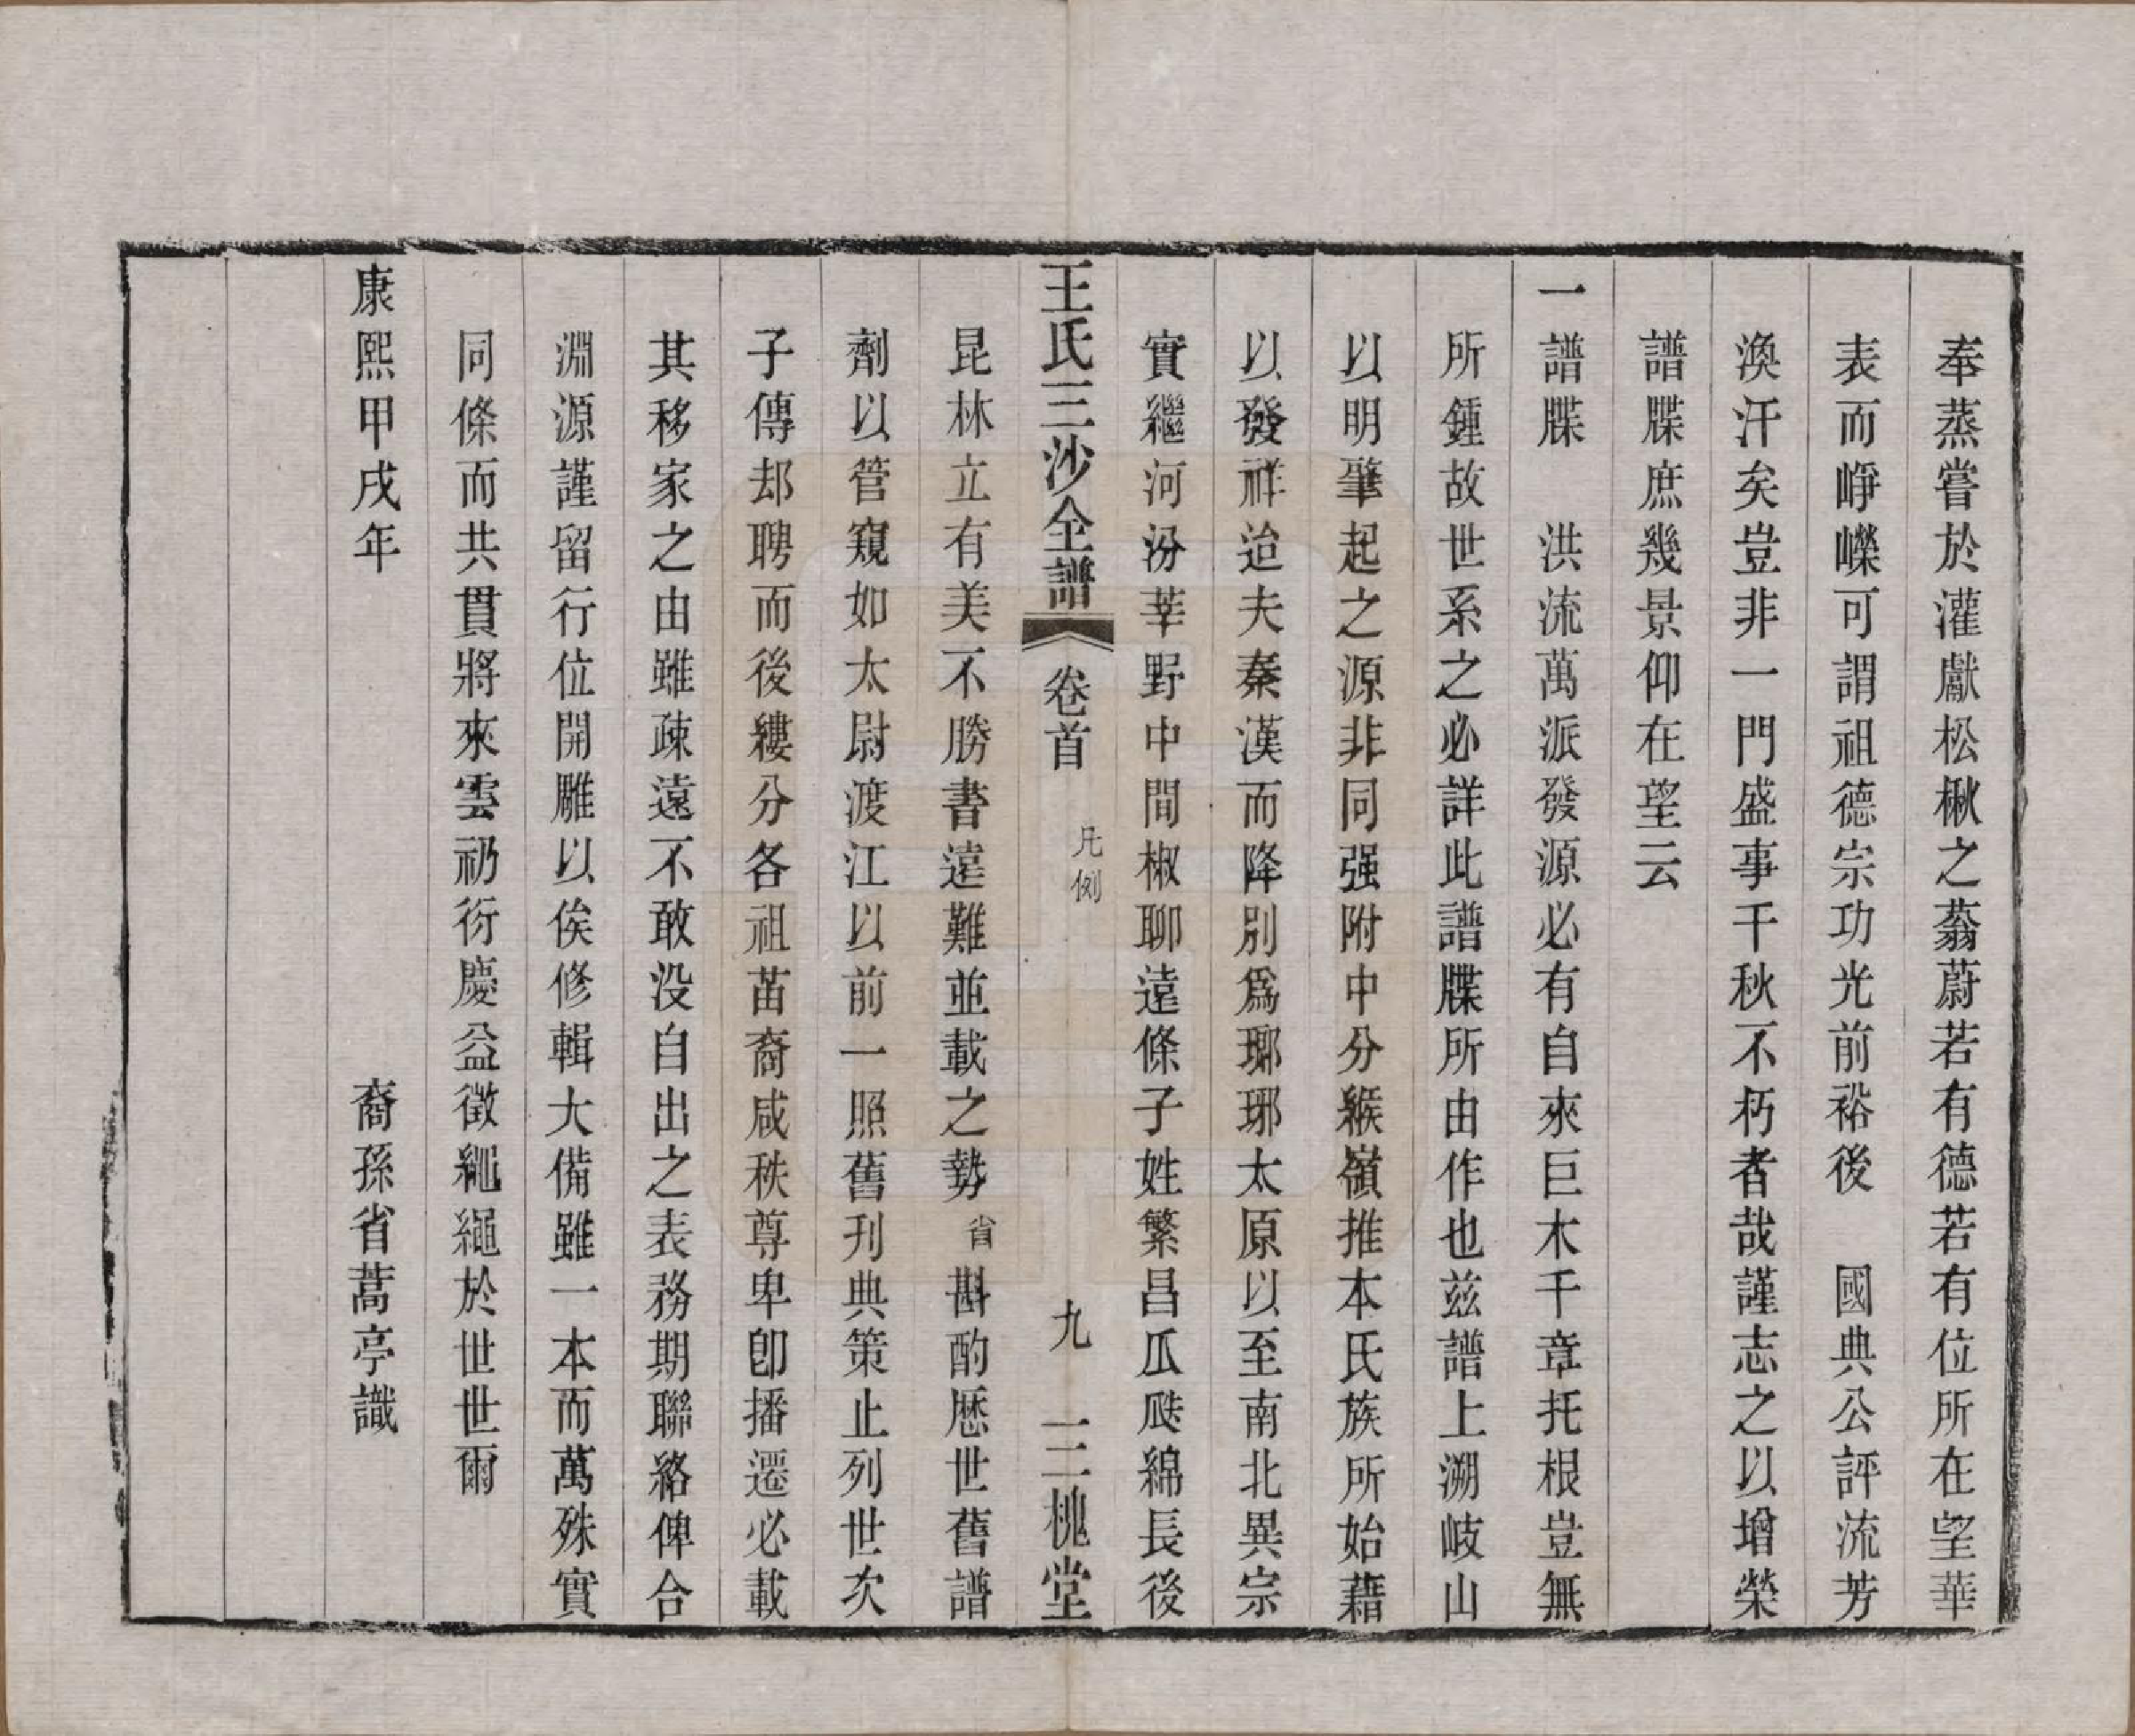 奉蒸嘗於灌獻松楸之蓊蔚若有德若有位所在望華
表而崢嶸可謂祖德宗功光前裕後　國典公評流芳
渙汗矣豈非一門盛事千秋不朽者哉謹志之以增榮
譜牒庶幾景仰在望云
一譜牒　洪流萬派發源必有自來巨木千章托根豈無
所鍾故世系之必詳此譜牒所由作也茲譜上溯岐山
以明肇起之源非同强附中分緱嶺推本氏族所始藉
以發祥迨夫秦漢而降別爲瑯琊太原以至南北異宗
實繼河汾莘野中間椒聊遠條子姓繁昌瓜瓞綿長後
王氏三沙全譜　卷首　凡例　九　三槐堂
昆林立有美不勝書遠難並載之勢省斟酌歷世舊譜
劑以管窺如太尉渡江以前一照舊刊典策止列世次
子傳却聘而後縷分各祖苗裔咸秩尊卑卽播遷必載
其移家之由雖疎遠不敢没自出之表務期聯絡俾合
淵源謹留行位開雕以俟修輯大備雖一本而萬殊實
同條而共貫將來雲礽衍慶益徵繩繩於世世爾
康熙甲戌年　裔孫省蒿亭識